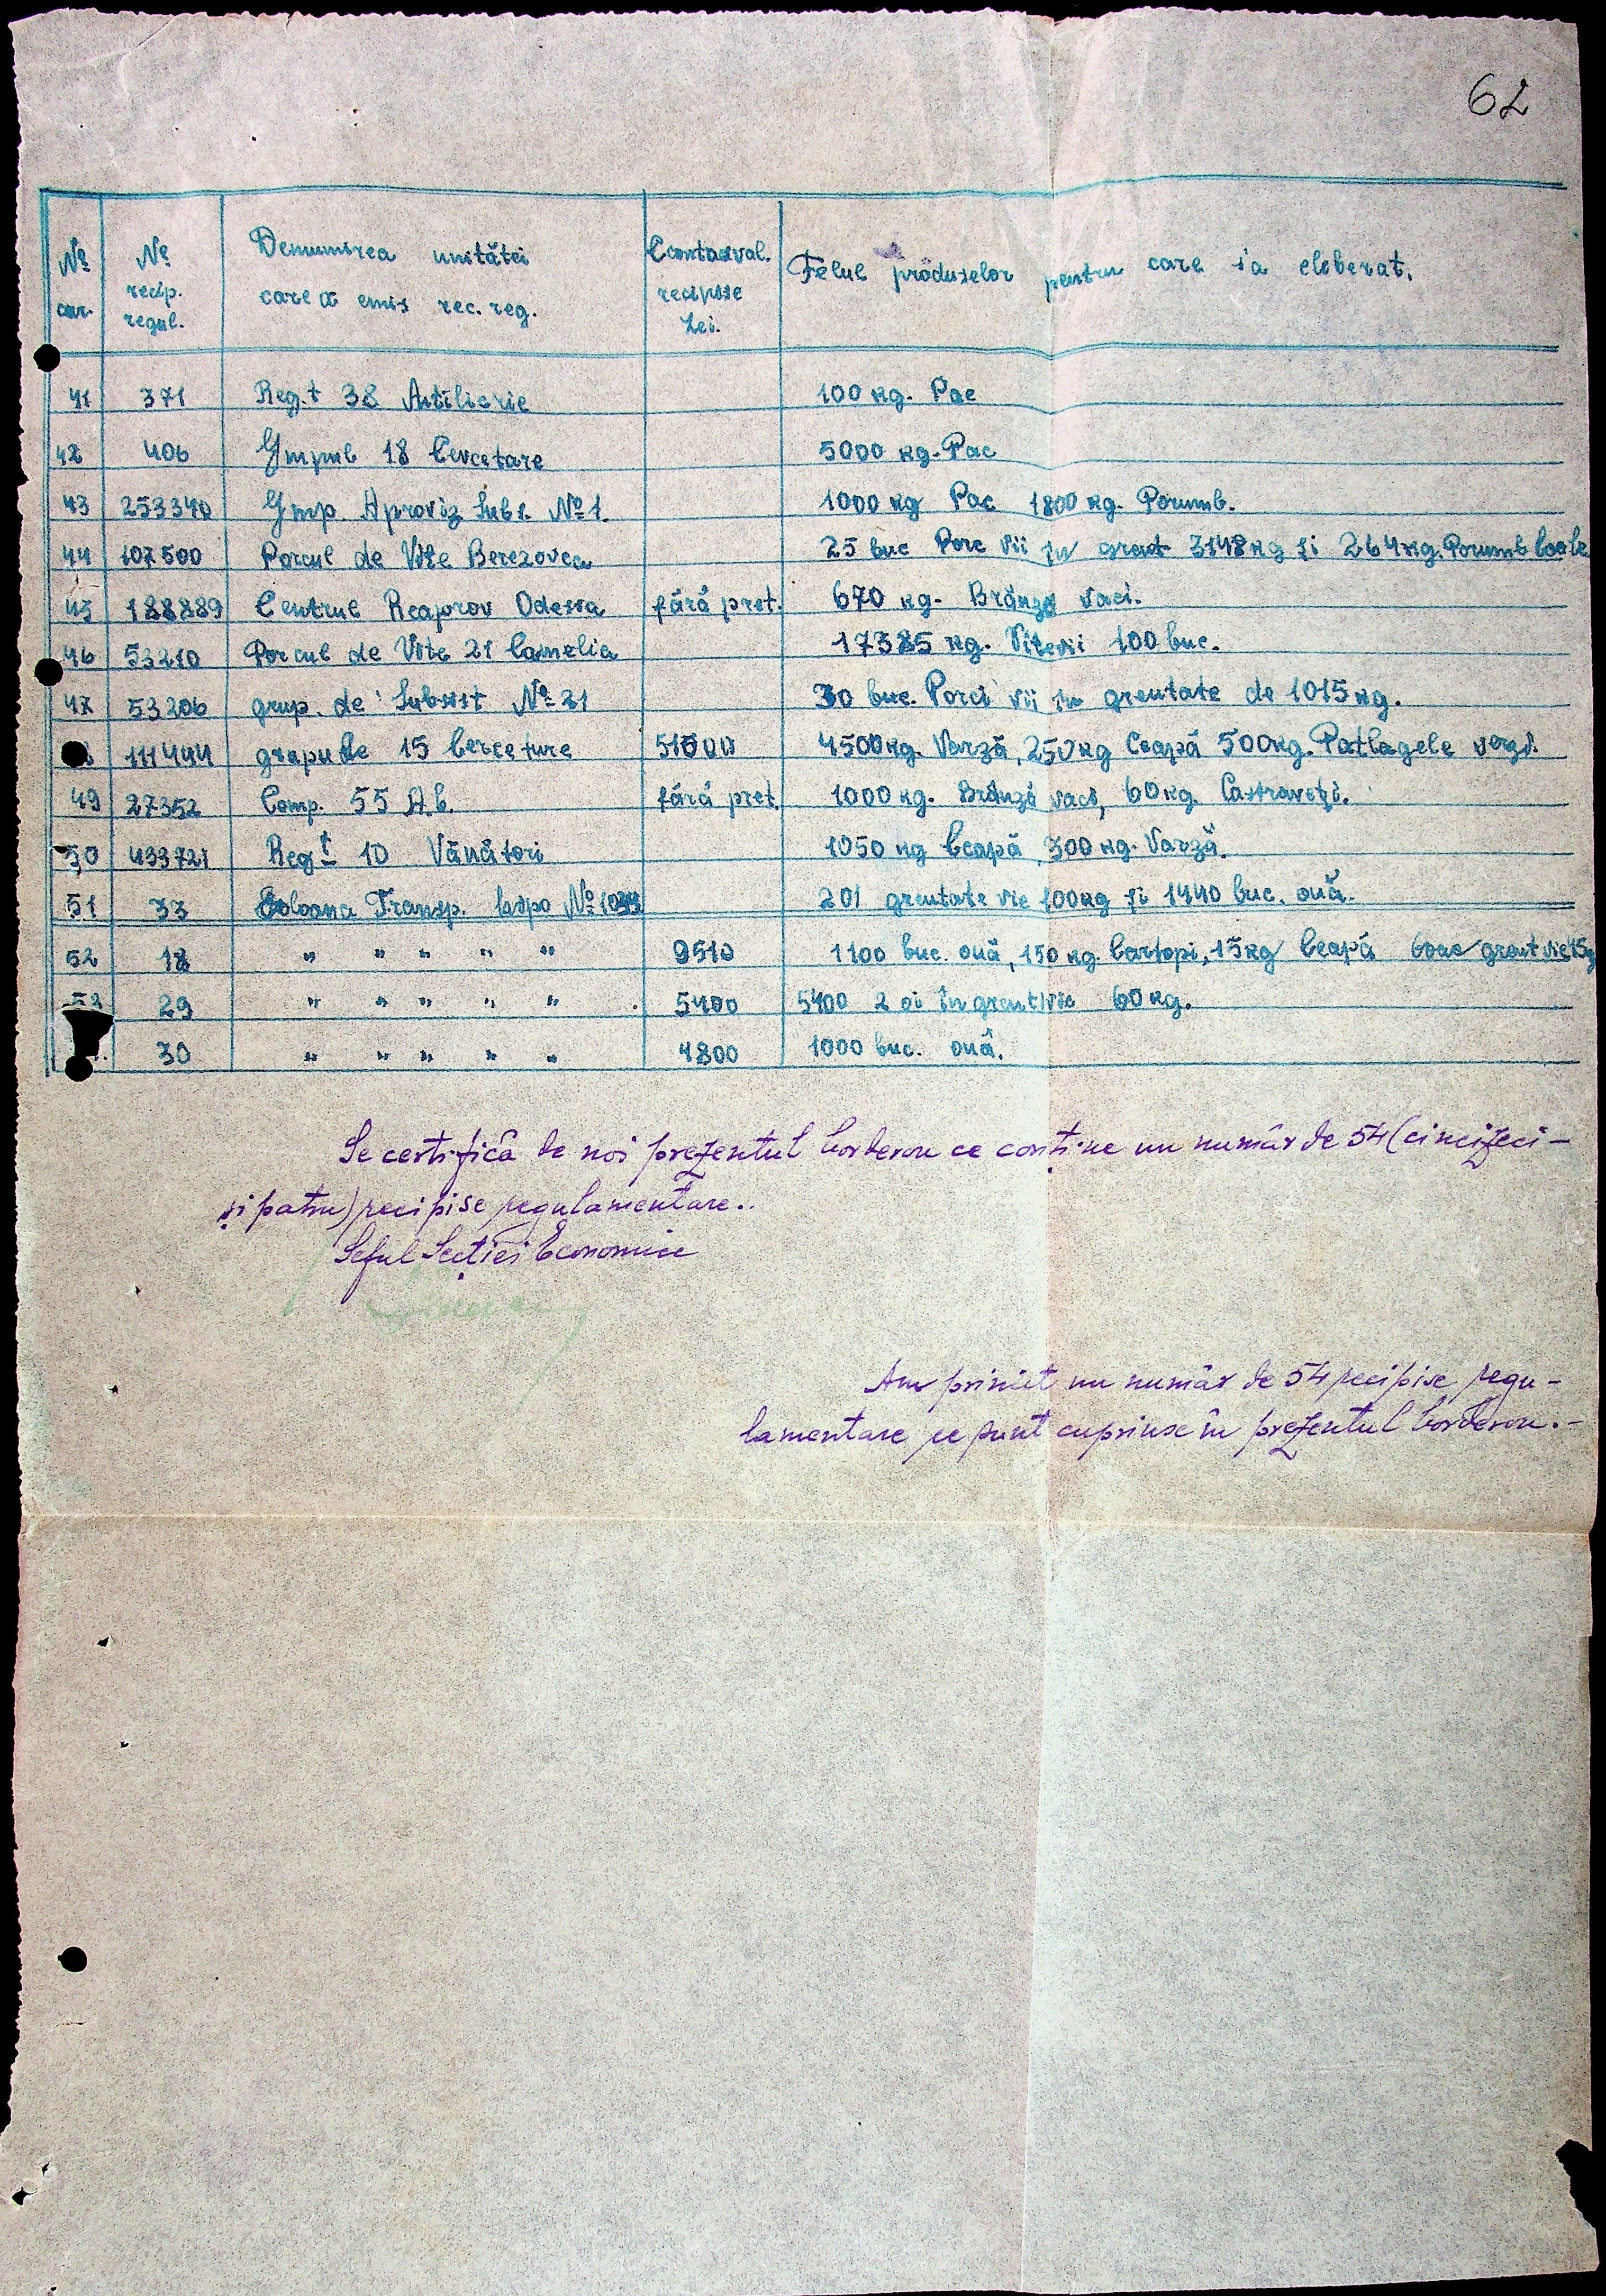 62
Nº cur.
Nº recip. regul.
Denumirea unitătei care a emis rec. reg.
Contraval. recipise Lei.
Felul produselor pentru care s'a eleberat.
41 371 Reg.t 38 Artilierie 100 kg. Pae
42 406 Grupul 18 Cercetare 5000 kg. Pae
43 253340 Grup. Aproviz Subs. Nº 1. 1000 kg Pae 1800 kg. Porumb.
44 107500 Parcul de Vite Berezovca 25 buc Porc vii în greut 3148 kg și 264 kg. Porumb boabe
45 188889 Centrul Reaprov Odessa fără preț. 670 kg. Brânză vaci.
46 53210 Parcul de Vite 21 Camelia 17385 kg. Vite vii 100 buc.
47 53206 grup. de Subsist Nº 21 30 buc. Porci vii în greutate de 1015 kg.
111444 grupu de 15 Cercetare 51500 4500 kg. Varză, 250 kg Ceapă 500 kg. Patlagele verzi.
49 27352 Comp. 55 A.b. fără preț. 1000 kg. Brânză vaci, 60 kg. Castraveți.
50 433721 Regt 10 Vânători 1050 kg Ceapă, 300 kg. Varză.
51 33 Coloana Transp. Nº 201 greutate vie 100 kg și 1440 buc. ouă.
52 18 " " " " " 9510 1100 buc. ouă, 150 kg. Cartopi, 15 kg Ceapă greut vie
53 29 " " " " " 5400 5400 2 oi în greut vie 60 kg.
30 " " " " " 4800 1000 buc. ouă.
Se certifică de noi prezentul borderou ce conține un număr de 54 (cincizeci-
și patru) recipise regulamentare..
Șeful Secției Economice
Am primit un număr de 54 recipise regu-
lamentare ce sunt cuprinse în prezentul borderou.-